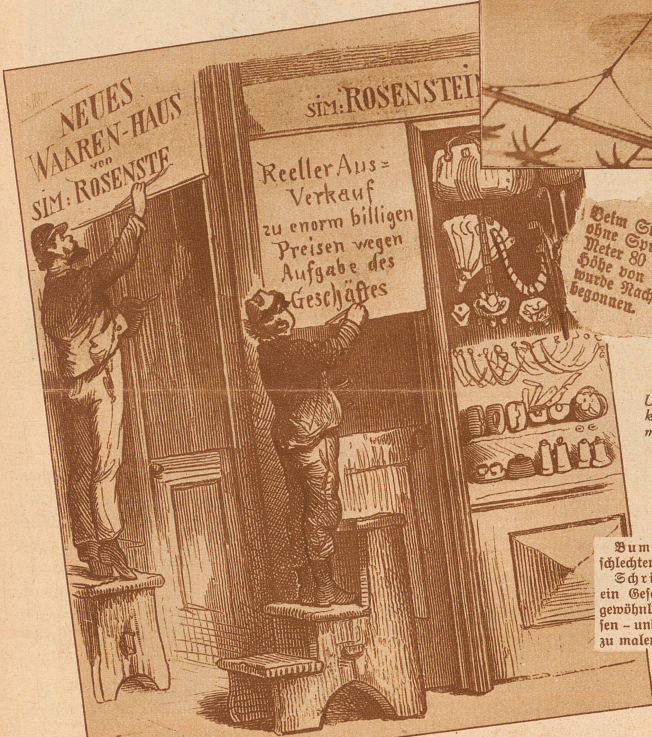 NEUES
WAAREN-HAUS
von
SIM: ROSENSTE
SIM: ROSENSTEIN
Reeller Aus=
Verkauf
zu enorm billigen
Preisen wegen
Aufgabe des
Geschäftes
Beim
ohne
Meter 80
Höhe von
wurde
begonnen.
Bum
schlechten
Schri
ein
gewöhnl
sen – un
zu malen